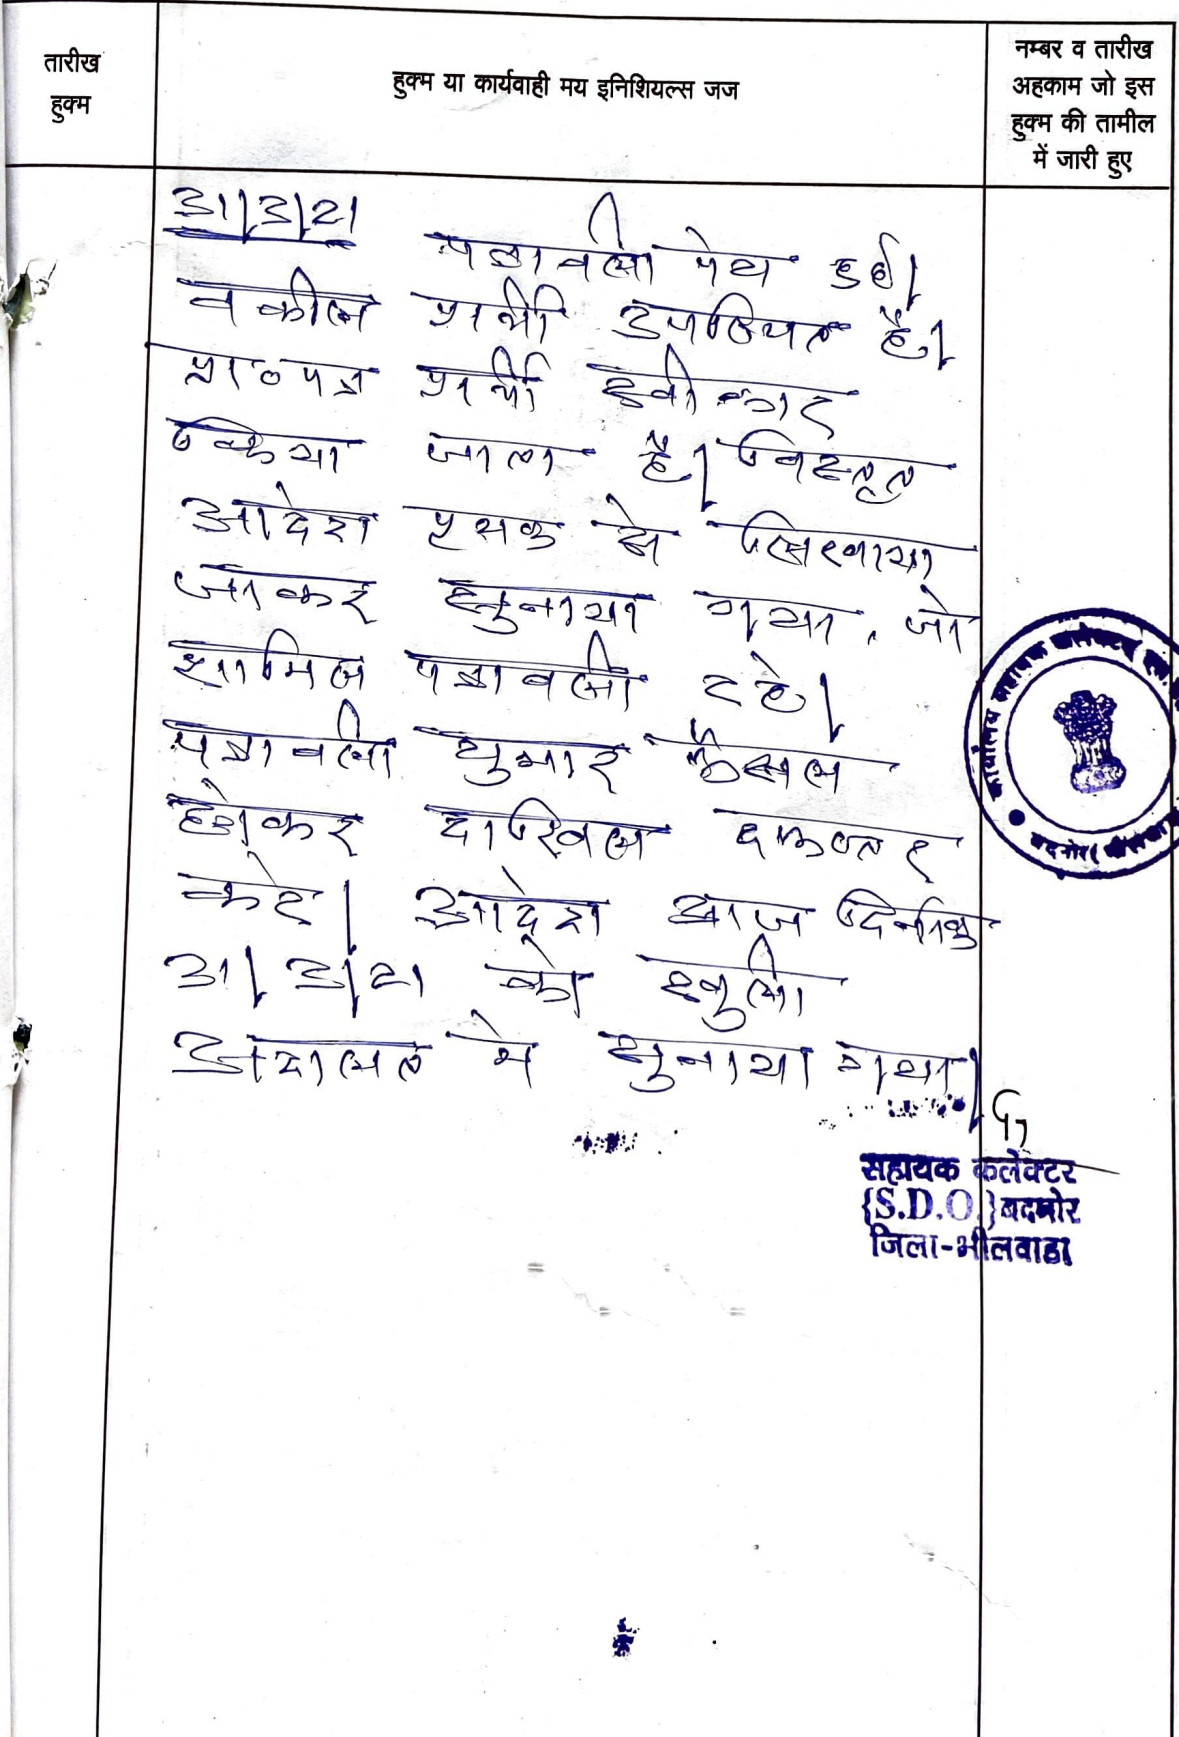 तारीख
हुक्म
हुक्म या कार्यवाही मय इनिशियल्स जज
नम्बर व तारीख
अहकाम जो इस
हुक्म की तामील
में जारी हुए
31/3/21
पत्रावली पेश हुई।
वकील प्रार्थी उपस्थित है।
प्रा० पत्र प्रार्थी स्वीकार
किया जाता है। विस्तृत
आदेश पृथक से लिखाया
जाकर सुनाया गया, जो
शामिल पत्रावली रहे।
पत्रावली शुमार फैसल
होकर दाखिल दफ्तर
करे। आदेश आज दिनांक
31/3/21 को खुली
अदालत मे सुनाया गया।
कार्यालय सहायक कलेक्टर
बदनोर
सहायक कलेक्टर
{S.D.O.} बदनोर
जिला-भीलवाडा